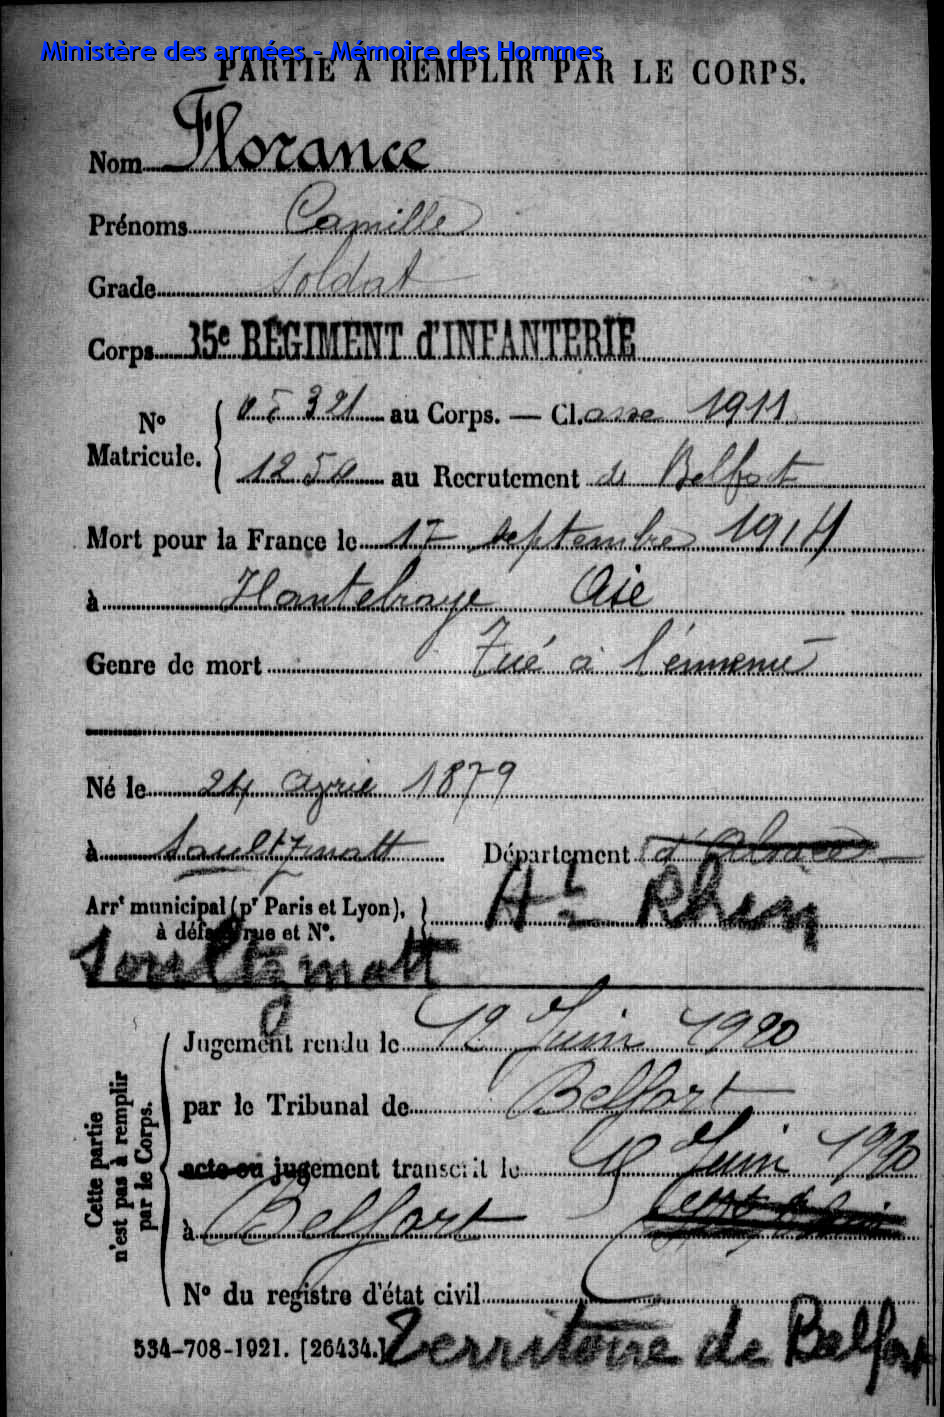 Ministère des armées - Mémoire des Hommes
PARTIE A REMPLIR PAR LE CORPS.
Nom Florance
Prénoms Camille
Grade soldat
Corps 35e RÉGIMENT d'INFANTERIE
No Matricule. 05321 au Corps. — Cl. asse 1911
1250 au Recrutement de Belfort
Mort pour la France le 17 septembre 1914
à Hautebraye Oise
Genre de mort Tué à l'ennemi
Né le 24 Avril 1879
à Soultzmatt Département d'Alsace
Arrt municipal (pr Paris et Lyon), Ht Rhin
à défaut rue et No.
Soultzmatt
Cette partie n'est pas à remplir par le Corps.
Jugement rendu le 12 Juin 1920
par le Tribunal de Belfort
acte ou jugement transcrit le 18 Juin 1920
à Belfort
No du registre d'état civil
534-708-1921. [26434.] Territoire de Belfort